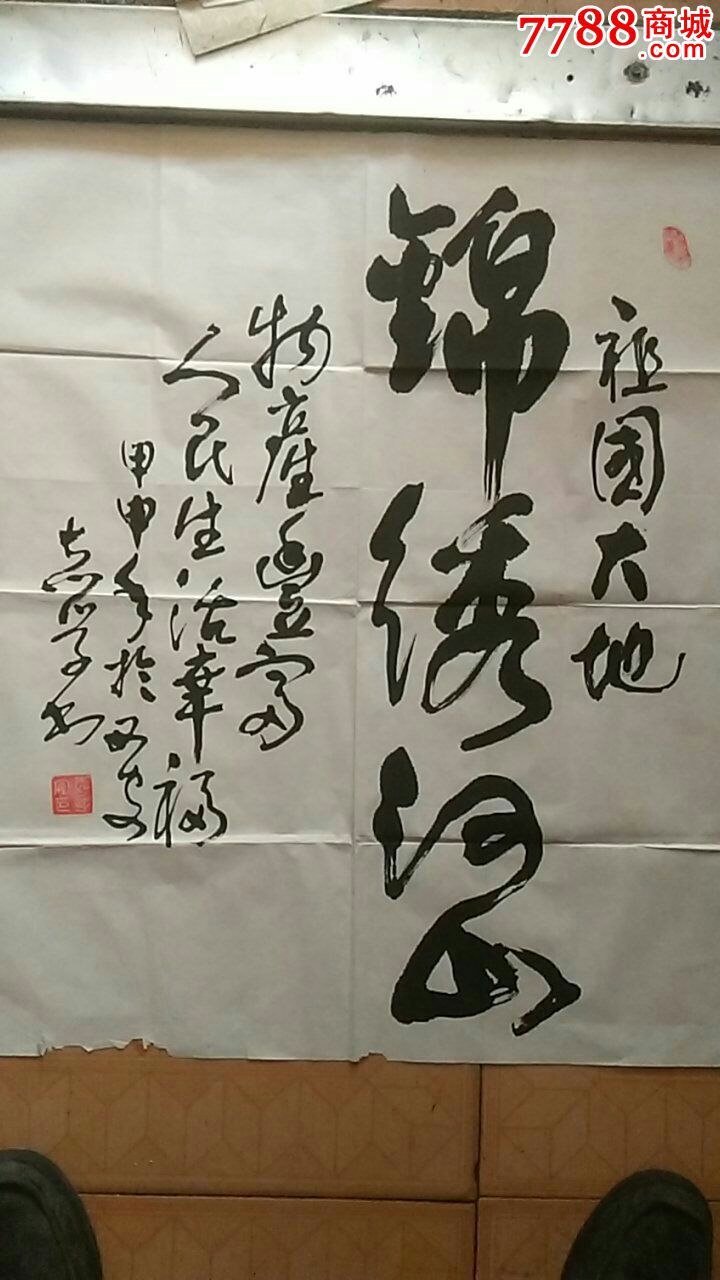 7788商城
.com
祖國大地
錦绣河山
物産豐富
人民生活幸福
甲申年於西安
志学书